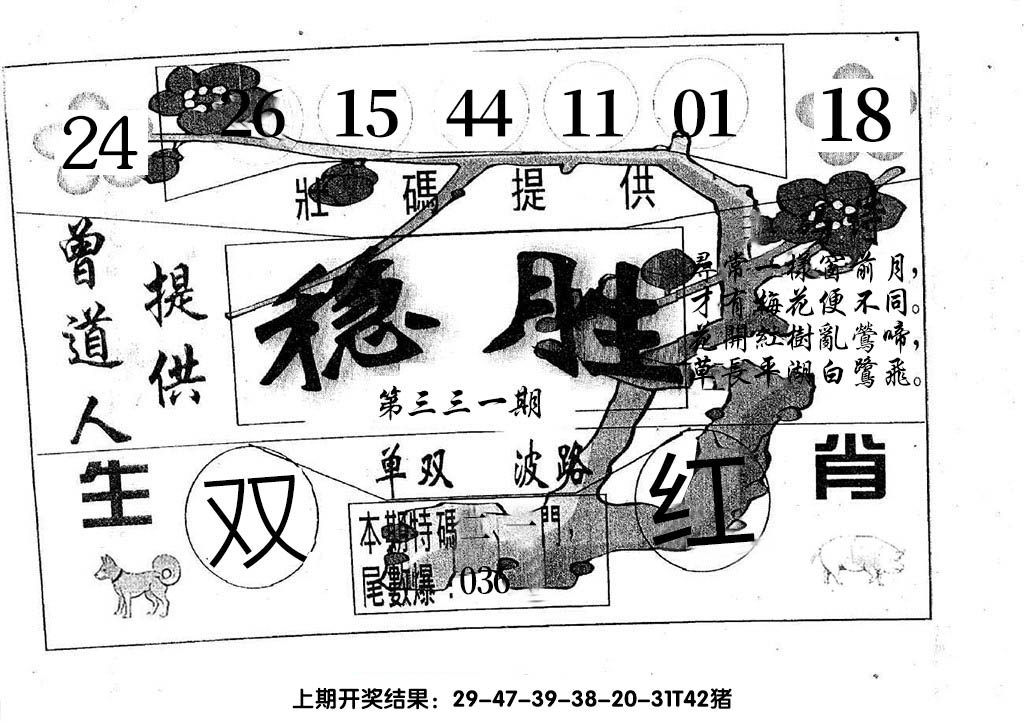 24 26 15 44 11 01 18
壯碼提供
特
曾道人
提供
稳胜
第三三一期
尋常一樣窗前月，
才有梅花便不同。
花開紅樹亂鶯啼，
草長平湖白鷺飛。
生肖
单双 波路
双 红
本期特碼二、一門，
尾數爆：036
上期开奖结果：29-47-39-38-20-31T42猪